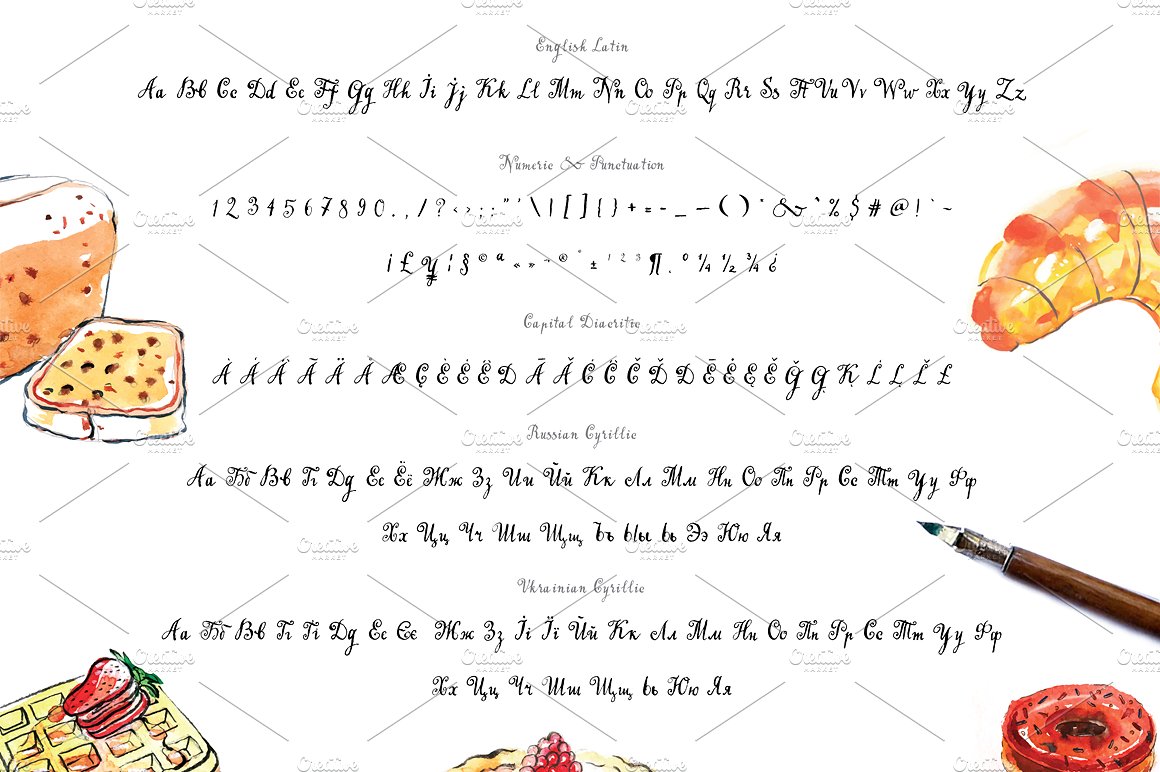 English Latin
Aa Bb Cc Dd Ee Ff Gg Hh İi Jj Kk Ll Mm Nn Oo Pp Qq Rr Ss Tt Uu Vv Ww Xx Yy Zz
Numeric & Punctuation
1 2 3 4 5 6 7 8 9 0 . , / ? ‹ › ; : " ' \ | [ ] { } + = - _ — ( ) * & ^ % $ # @ ! ` ~
¡ £ ¥ ¦ § © ª « » ¬ ® ° ± ¹ ² ³ ¶ . º ¼ ½ ¾ ¿
Capital Diacritic
Russian Cyrillic
Аа Бб Вв Гг Дд Ее Ёё Жж Зз Ии Йй Кк Лл Мм Нн Оо Пп Рр Сс Тт Уу Фф
Хх Цц Чч Шш Щщ Ъъ Ыы Ьь Ээ Юю Яя
Ukrainian Cyrillic
Аа Бб Вв Гг Ґґ Дд Ее Єє Жж Зз Іі Її Йй Кк Лл Мм Нн Оо Пп Рр Сс Тт Уу Фф
Хх Цц Чч Шш Щщ Ьь Юю Яя
Creative Market